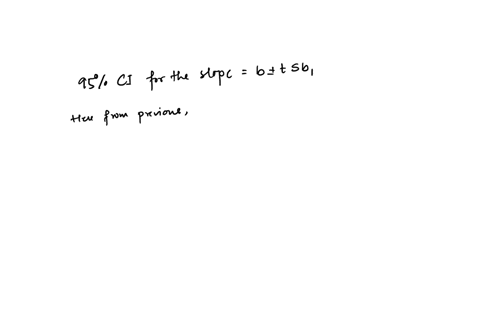 95% CI for the slope = b ± t Sb₁
Here from previous,